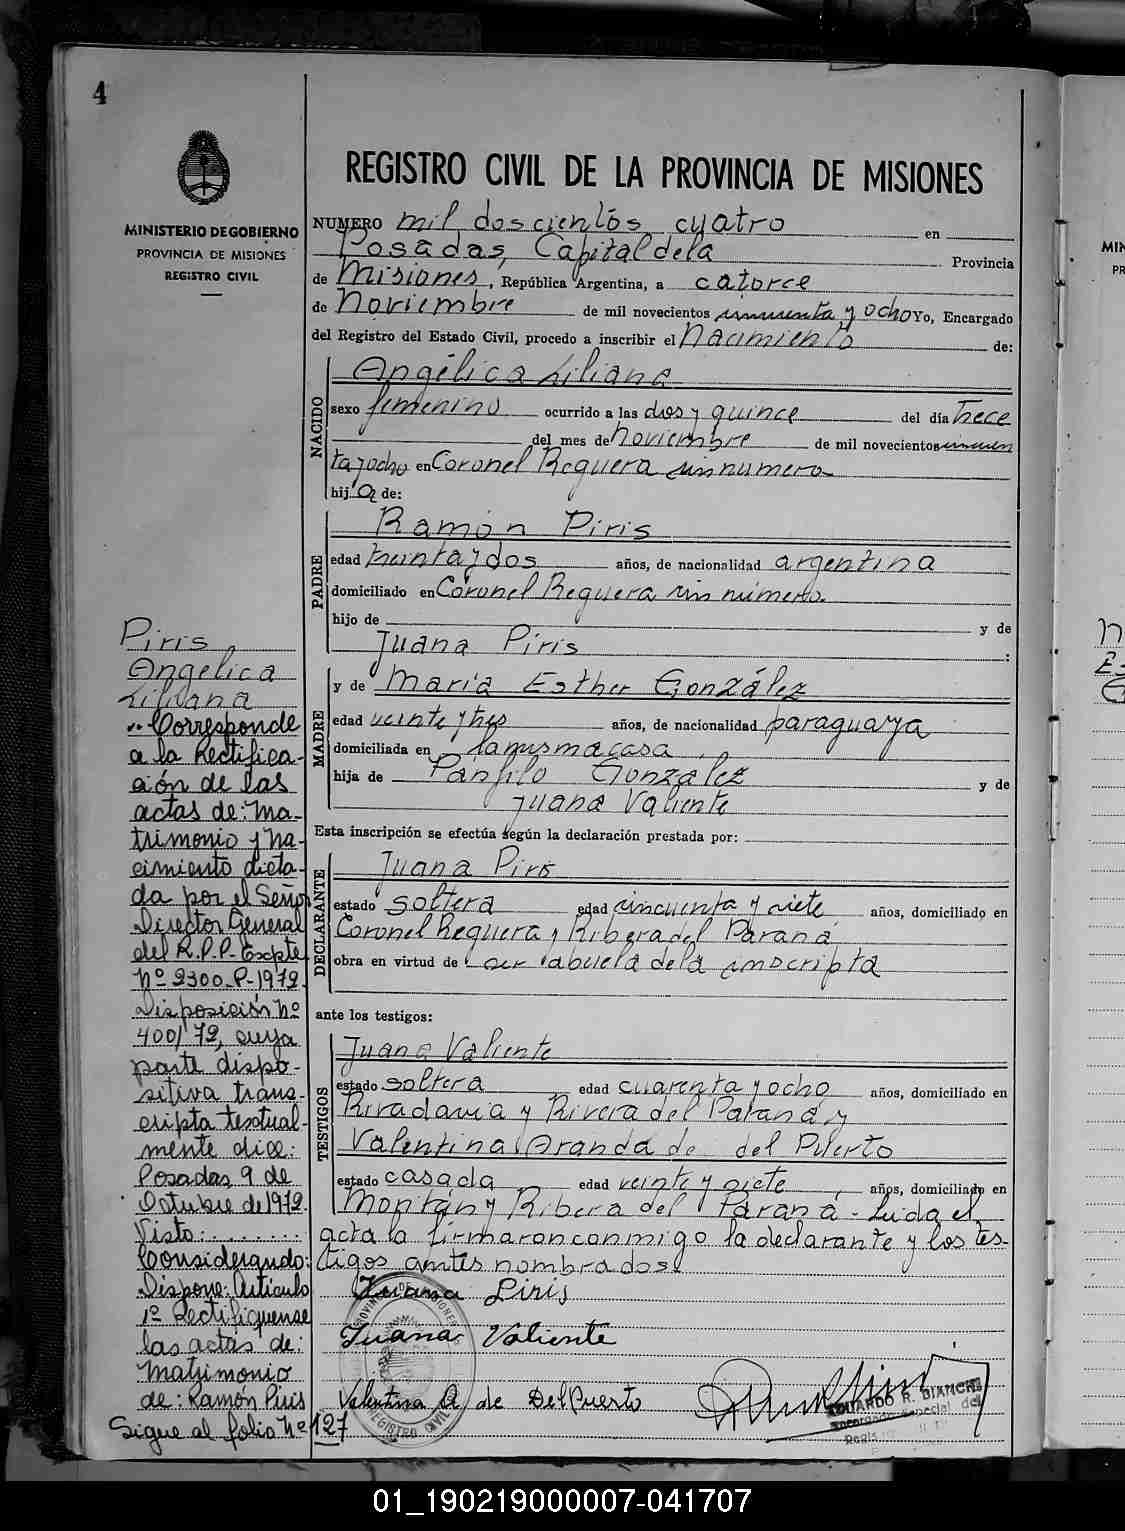 4
MINISTERIO DE GOBIERNO
PROVINCIA DE MISIONES
REGISTRO CIVIL
Piris,
Angélica
Liliana
"Corresponde
a la Rectifica-
ción de las
actas de: Ma-
trimonio y Na-
cimiento dicta-
da por el Señor
Director General
del R.P.P. Expte
Nº 2300-P-1972
Disposición Nº
400/72, cuya
parte dispo-
sitiva trans-
cripta textual-
mente dice:
Posadas 9 de
Octubre de 1972.
Visto:........
Considerando:
Dispone: Artículo
1º Rectifíquense
las actas de:
Matrimonio
de: Ramón Piris
Sigue al folio Nº 127
REGISTRO CIVIL DE LA PROVINCIA DE MISIONES
NUMERO mil doscientos cuatro en
Posadas, Capital de la Provincia
de Misiones, República Argentina, a catorce
de Noviembre de mil novecientos cincuenta y ocho Yo, Encargado
del Registro del Estado Civil, procedo a inscribir el Nacimiento de:
NACIDO
Angélica Liliana
sexo femenino ocurrido a las dos y quince del día trece
del mes de noviembre de mil novecientos cincuen
ta y ocho en Coronel Reguera sin numero
hija de:
PADRE
Ramón Piris
edad treinta y dos años, de nacionalidad argentina
domiciliado en Coronel Reguera sin número.
hijo de y de
Juana Piris :
MADRE
y de María Esther González
edad veinte y tres años, de nacionalidad paraguaya
domiciliada en la misma casa
hija de Panfilo González y de
Juana Valiente
Esta inscripción se efectúa según la declaración prestada por:
DECLARANTE
Juana Piris
estado soltera edad cincuenta y siete años, domiciliado en
Coronel Reguera y Ribera del Paraná
obra en virtud de ser abuela de la inscripta
ante los testigos:
TESTIGOS
Juana Valiente
estado soltera edad cuarenta y ocho años, domiciliado en
Rivadavia y Rivera del Paraná y
Valentina Aranda de del Puerto
estado casada edad veinte y siete años, domiciliado en
Montán y Ribera del Paraná - Leida el
acta la firmaron conmigo la declarante y los tes-
tigos antes nombrados.
Juana Piris
Juana Valiente
Valentina A. de Del Puerto
REGISTRO CIVIL
EDUARDO R. BIANCHI
Encargado Especial del
01_190219000007-041707